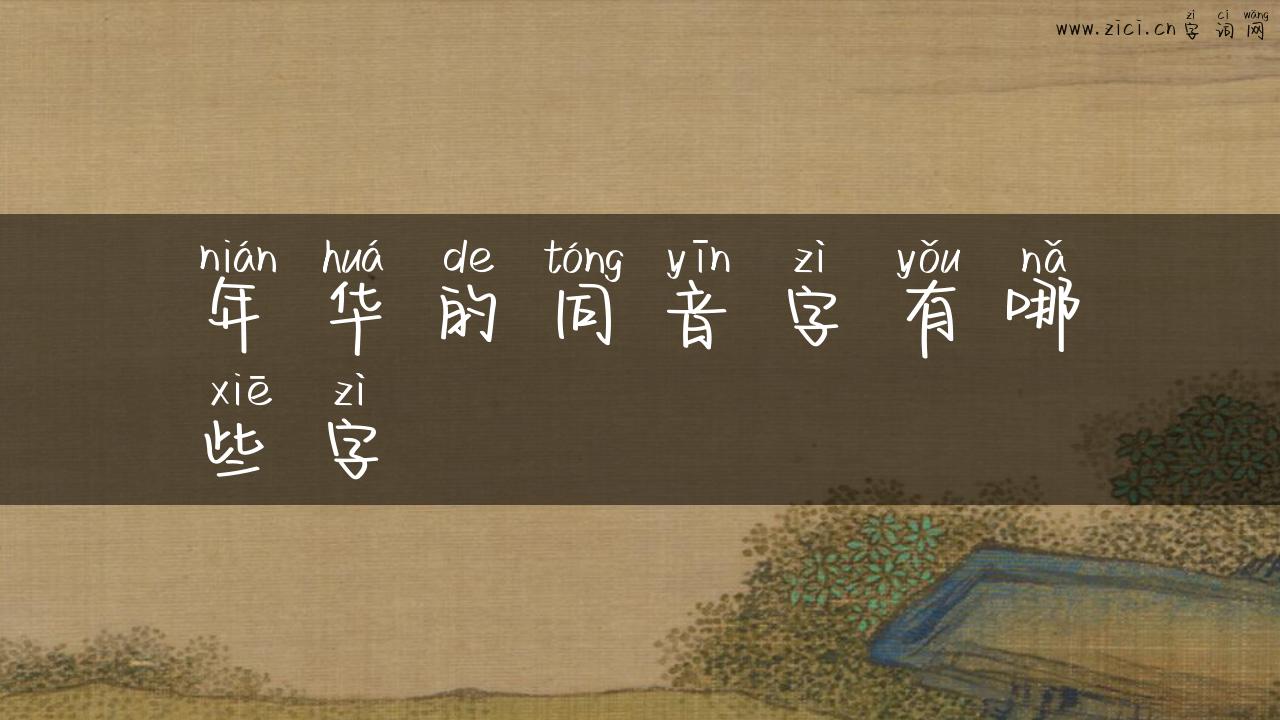 zì cí wǎng
www.zici.cn 字词网
nián huá de tóng yīn zì yǒu nǎ
年华的同音字有哪
xiē zì
些字